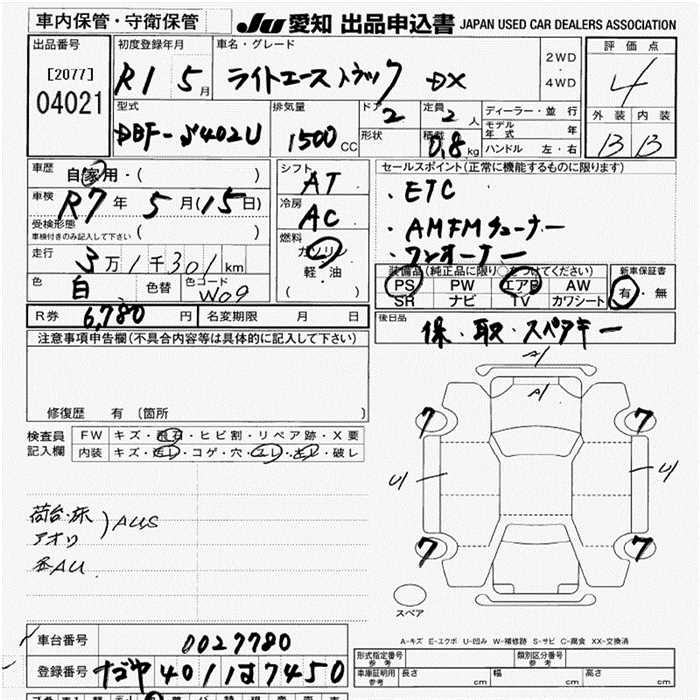 車内保管・守衛保管
JU 愛知 出品申込書 JAPAN USED CAR DEALERS ASSOCIATION
出品番号
[2077]
04021
初度登録年月
R1 5月
車名・グレード
ライトエーストラック DX
2WD
・
4WD
評価点
4
外装 内装
B B
型式
DBF-S402U
排気量
1500 CC
ドア
2
形状
定員
2 人
積載
0.8 kg
ディーラー・並行
モデル年式 年
ハンドル 左・右
車歴
自家用・( )
車検
R7年 5月(15日)
受検形態
車検付きのみ記入して下さい ( )
走行
3万1千301km
色
白
色替
色コード
W09
シフト
AT
冷房
AC
燃料
ガソリン
軽・油
( )
セールスポイント(正常に機能するものに限ります)
・ETC
・AMFMチューナー
・ワンオーナー
装備品(純正品に限り○をつけてください)
PS PW エアB AW
SR ナビ TV カワシート
新車保証書
有・無
R券 6,780 円
名変期限 月 日
後日品
保・取・スペアキー
注意事項申告欄(不具合内容等は具体的に記入して下さい)
修復歴 有 (箇所
検査員
記入欄
FW キズ・飛石・ヒビ割・リペア跡・X要
内装 キズ・汚レ・コゲ・穴・スレ・劣レ・破レ
荷台・床
アオリ
AUS
AU
A1
A1
7
7
U1
U1
7
7
スペア
A-キズ E-エクボ U-凹み W-補修跡 S-サビ C-腐食 XX-交換済
車台番号 0027780
登録番号 ナゴヤ 401 は 7450
形式指定番号
参考
類別区分番号
参考
車庫証明用
参考
長さ cm
幅 cm
高さ cm